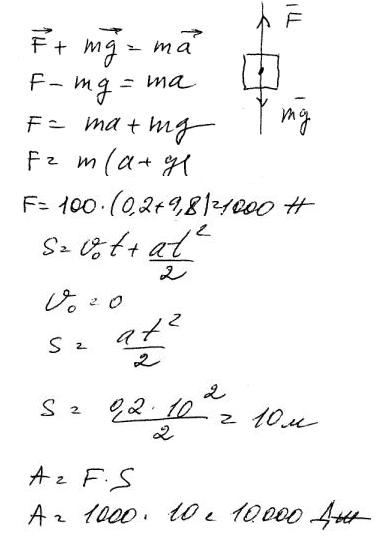 F⃗ + mg⃗ = ma⃗
F̄
F - mg = ma
mḡ
F = ma + mg
F = m(a + g)
F = 100 · (0,2 + 9,8) = 1000 Н
S = v₀t + at²/2
v₀ = 0
S = at²/2
S = 0,2 · 10²/2 = 10 м
A = F · S
A = 1000 · 10 = 10000 Дж